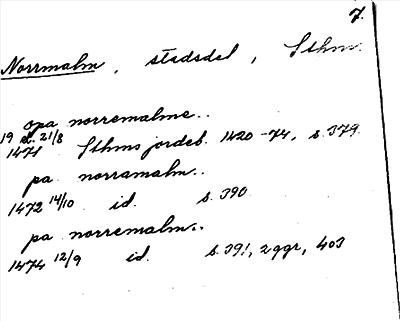 7.
Norrmalm, stadsdel, Sthm.
opa norremalme..
19 el. 21/8
1471 Sthms jordeb. 1420-74, s. 379
pa norramalm..
1472 14/10 id. s. 390
pa norremalm..
1474 12/9 id. s. 391, 2 ggr, 403